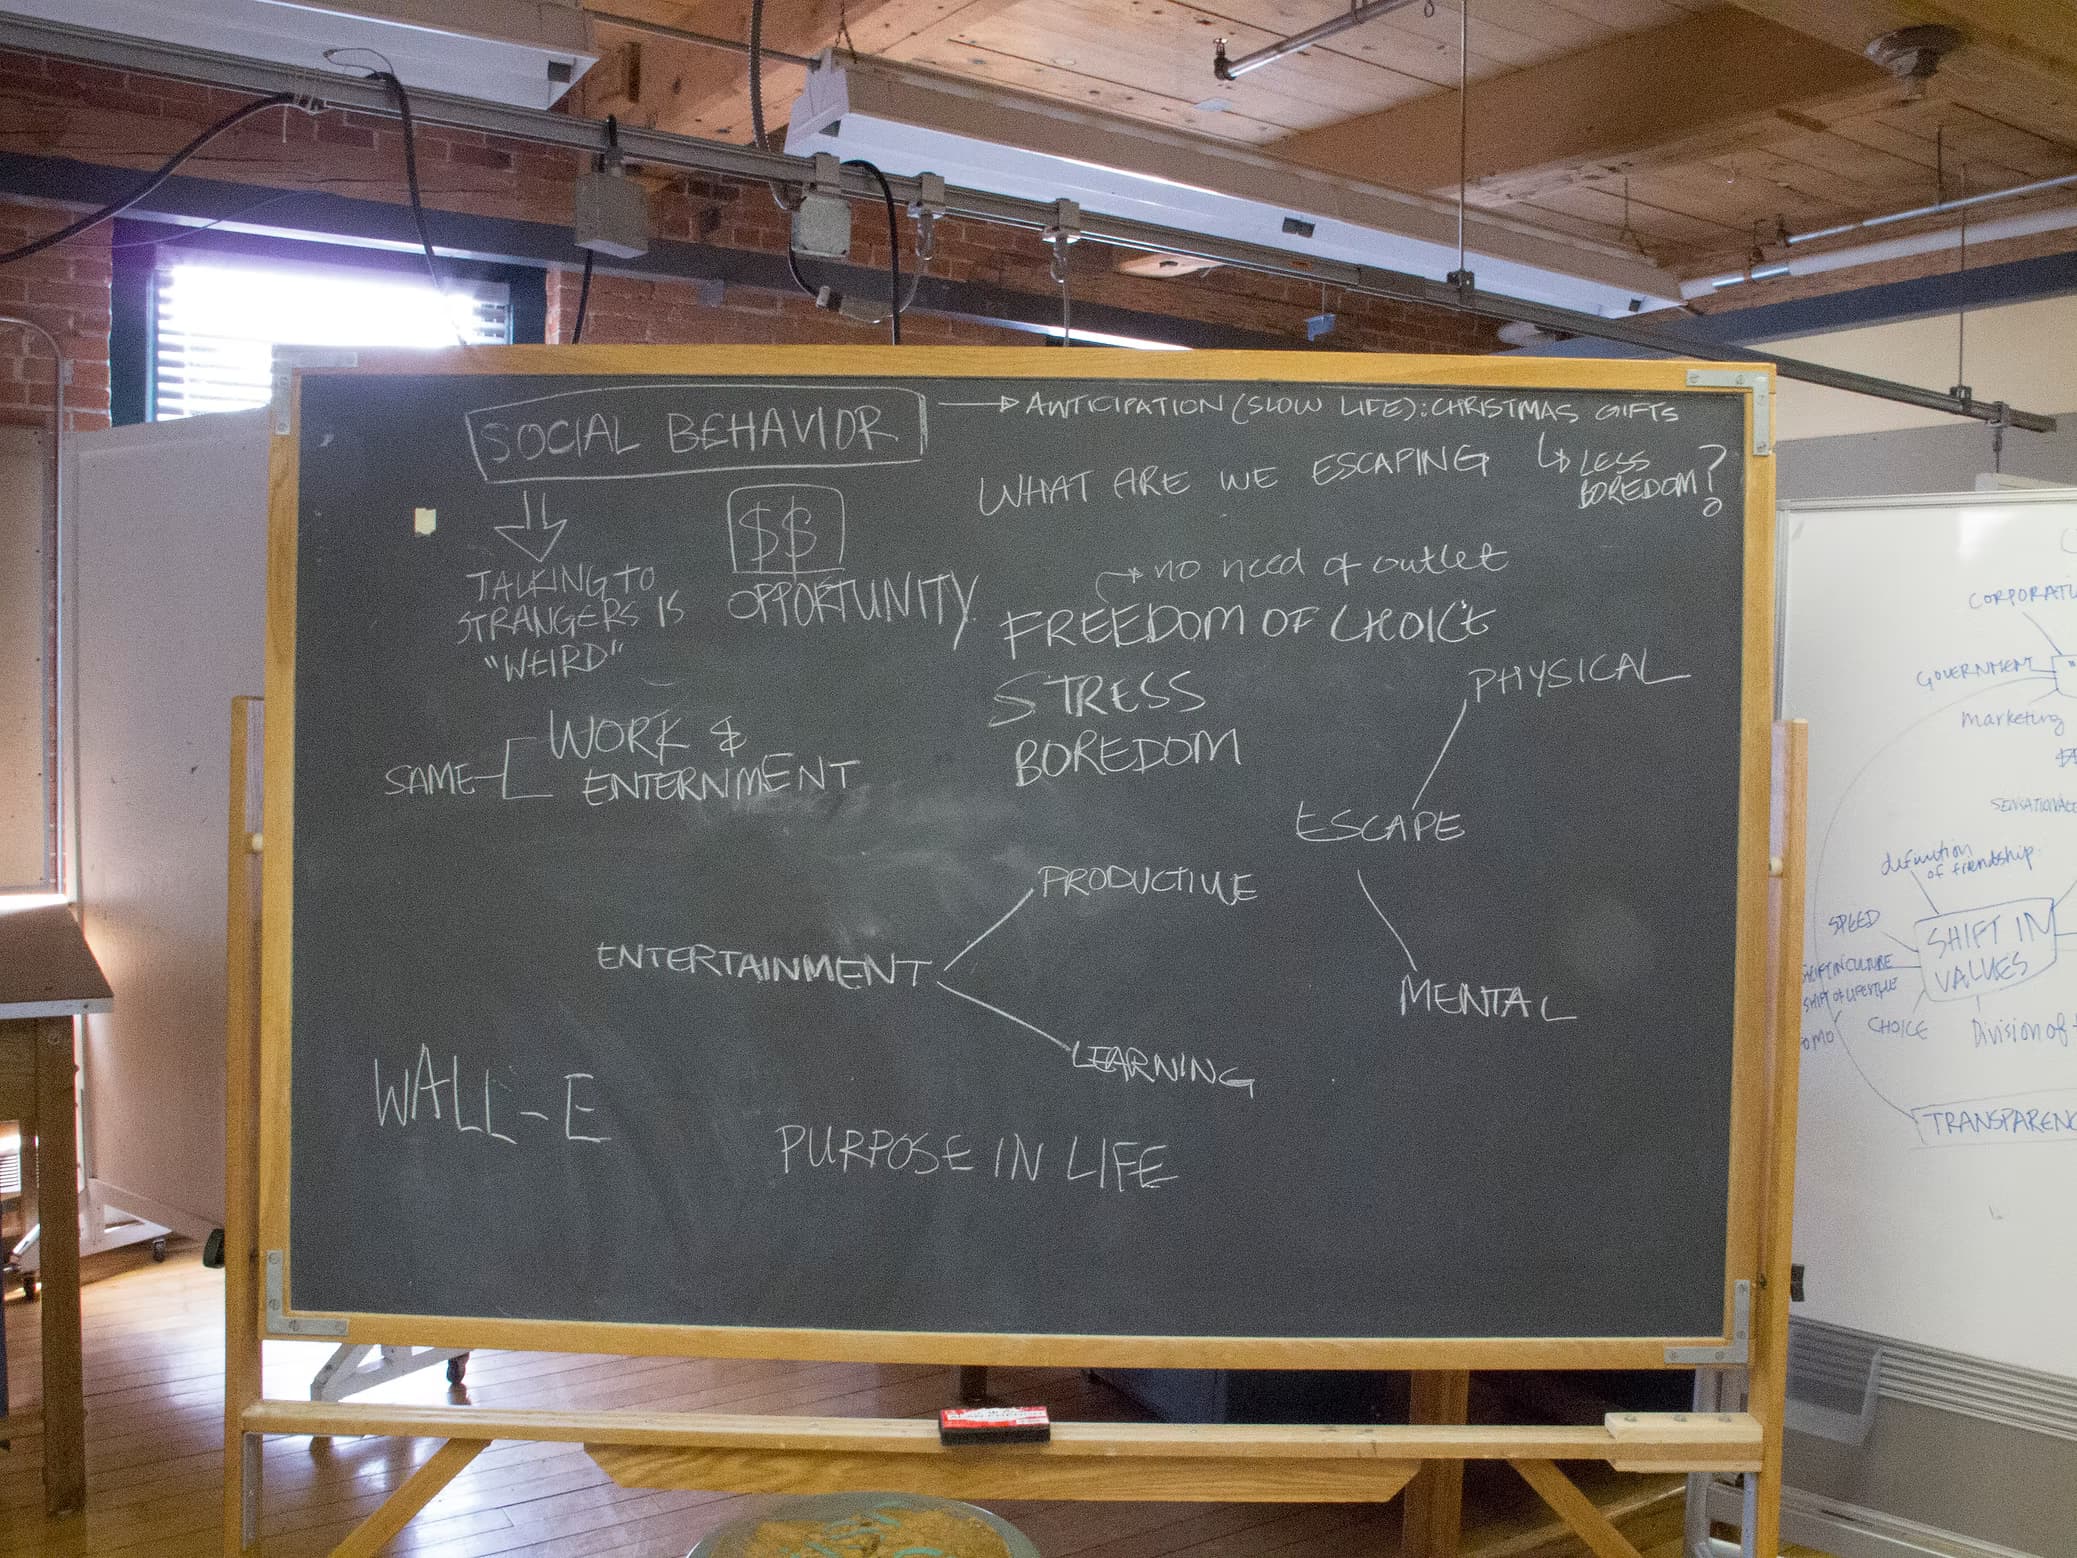 SOCIAL BEHAVIOR
ANTICIPATION (SLOW LIFE): CHRISTMAS GIFTS
LESS
BOREDOM?
WHAT ARE WE ESCAPING
?
TALKING TO
STRANGERS IS
"WEIRD"
$$
OPPORTUNITY
no need of outlet
FREEDOM OF CHOICE
STRESS
BOREDOM
SAME
WORK &
ENTERNMENT
PHYSICAL
ESCAPE
MENTAL
PRODUCTIVE
ENTERTAINMENT
LEARNING
WALL-E
PURPOSE IN LIFE
GOVERNMENT
Marketing
definition
of friendship
SPEED
SHIFT IN
VALUES
SHIFT OF LIFESTYLE
CHOICE
Division of